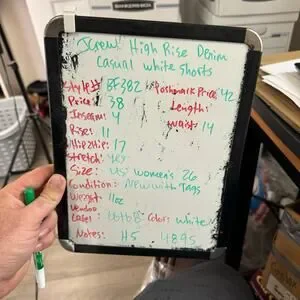 BANKERS BOX
JCrew High Rise Denim
Casual white shorts
Style# BF382 Poshmark Price: 42
Price: 38 Length:
Inseam: 4 Waist: 14
Rise: 11
Hip2Hip: 17
Stretch: yes
Size: US: Women's 26
Condition: New with Tags
Weight: 11oz
Vendoo
Label: Color: white
Notes: H5 4895